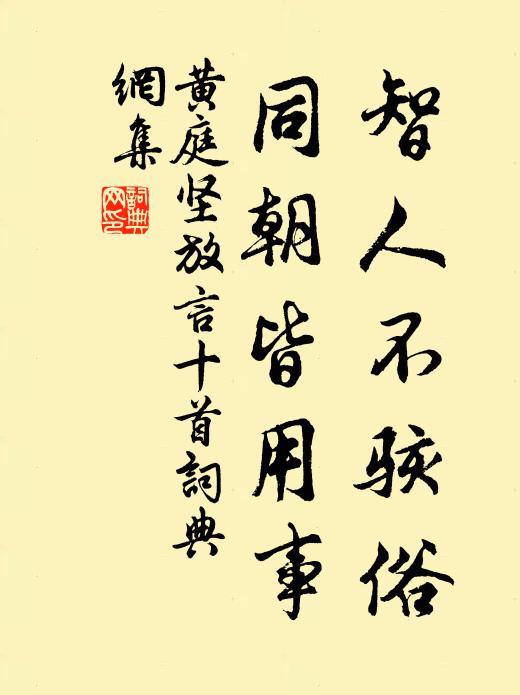 智人不駭俗
同朝皆用事
黄庭坚放言十首詞典
網集
詞典
网印